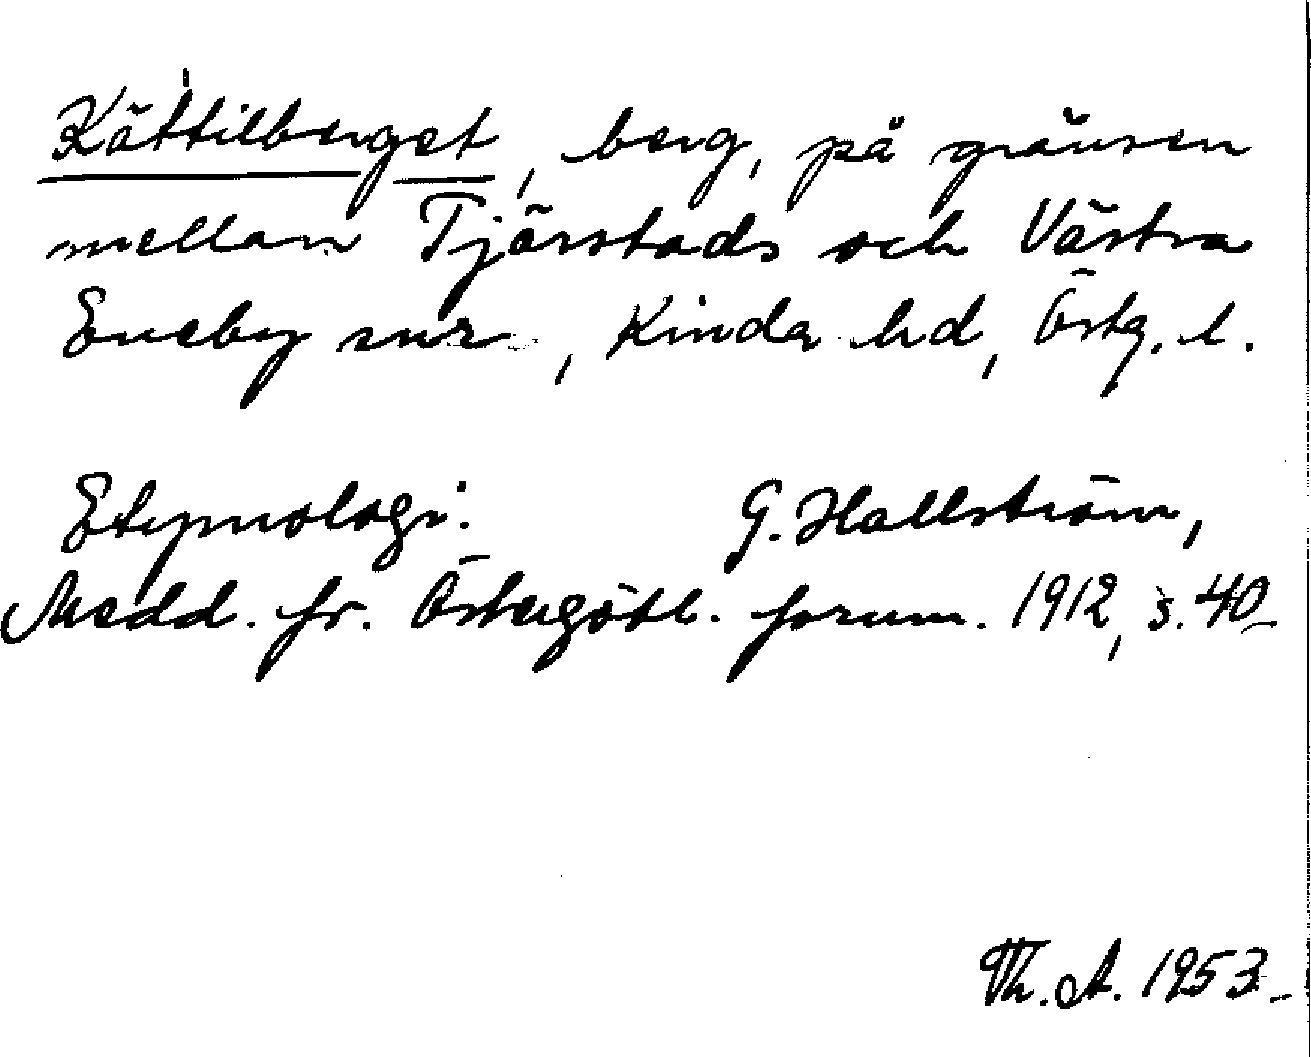 Kättilberget, berg, på gränsen
mellan Tjärstads och Västra
Eneby snr, Kinda hd, Östg. l.
Etymologi. G. Hallström,
Medd. fr. Östergötl. fornm. 1912, s. 40
Th. A. 1953